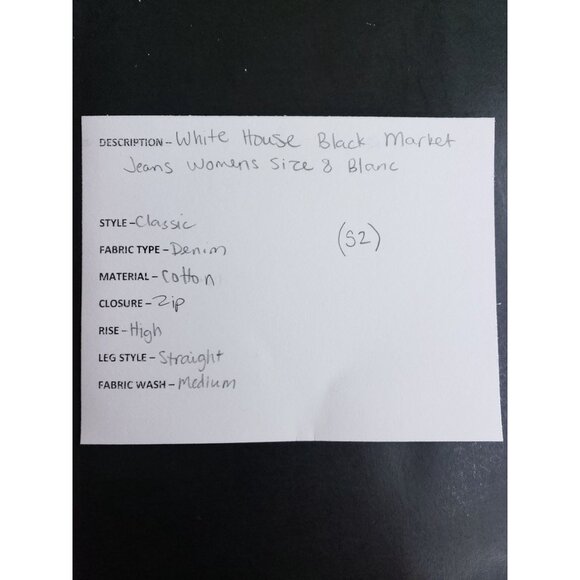 DESCRIPTION – White House Black Market
Jeans Womens Size 8 Blanc
STYLE – Classic
(S2)
FABRIC TYPE – Denim
MATERIAL – Cotton
CLOSURE – Zip
RISE – High
LEG STYLE – Straight
FABRIC WASH – Medium